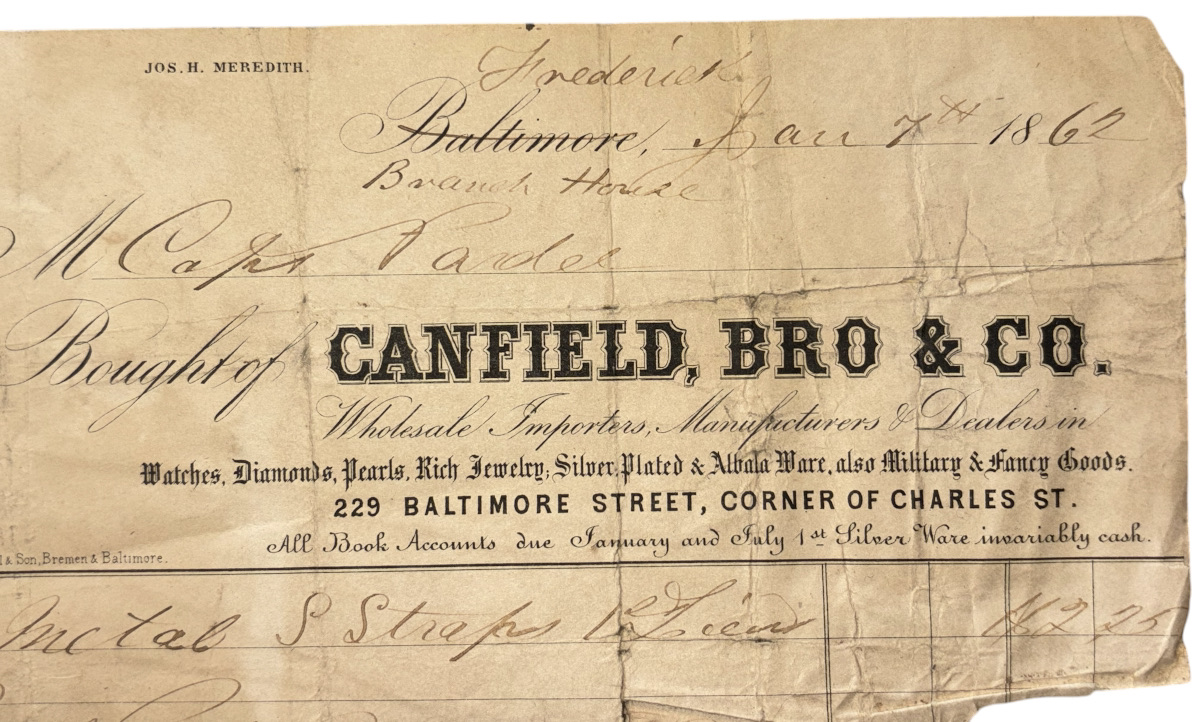 JOS. H. MEREDITH.
Frederick
Baltimore, Jan 7th 1862
Branch House
M Capt Pardee
Bought of CANFIELD, BRO & CO.
Wholesale Importers, Manufacturers & Dealers in
Watches, Diamonds, Pearls, Rich Jewelry, Silver, Plated & Albata Ware, also Military & Fancy Goods.
229 BALTIMORE STREET, CORNER OF CHARLES ST.
All Book Accounts due January and July 1st Silver Ware invariably cash.
& Son, Bremen & Baltimore.
Metal S Straps 1st Lieut 2 25